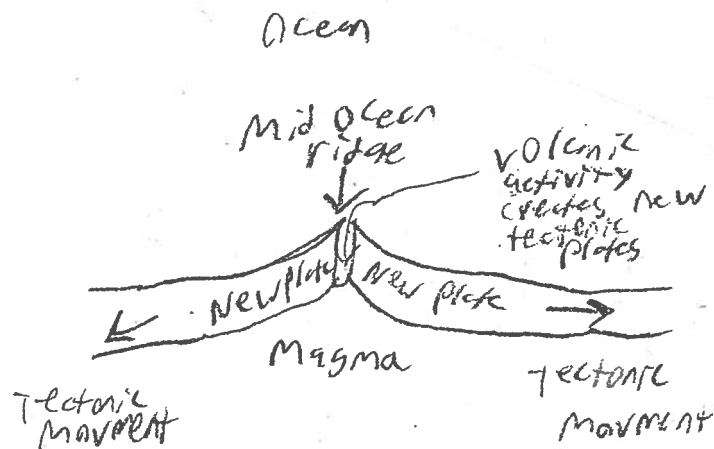 Ocean
Mid Ocean
ridge
volcinic
activity
creates new
tectonic
plates
New plate
New plate
Magma
Tectonic
Movment
Tectonic
Movment